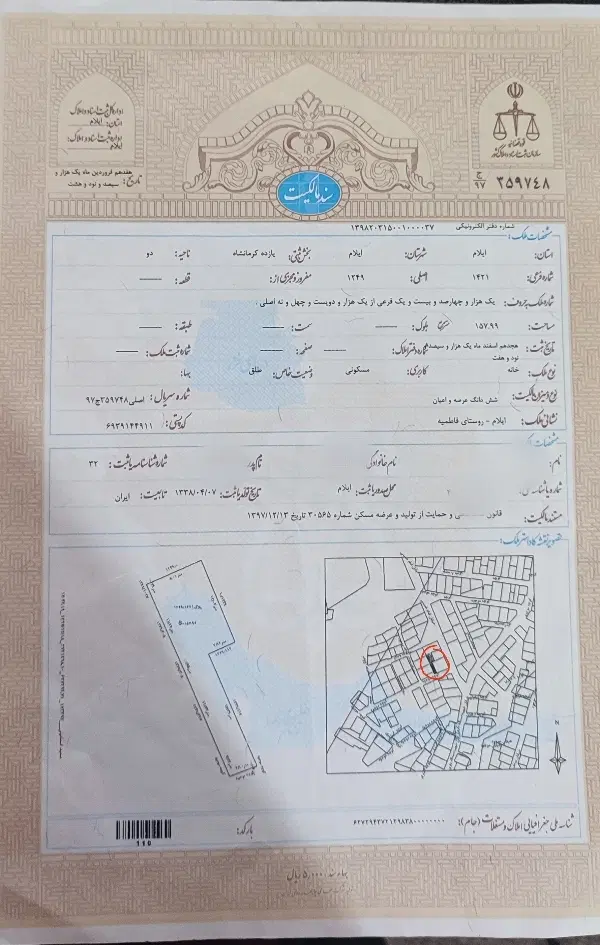 اداره کل ثبت اسناد و املاک
استان: ایلام
اداره ثبت اسناد و املاک:
ایلام
تاریخ: هفدهم فروردین ماه یک هزار و سیصد و نود و هشت
قوه قضائیه
سازمان ثبت اسناد و املاک کشور
۳۵۹۷۴۸ ج ۹۷
سند مالکیت
شماره دفتر الکترونیکی ۱۳۹۸۲۰۳۱۵۰۰۱۰۰۰۰۳۷
مشخصات ملک:
استان: ایلام شهرستان: ایلام بخش ثبتی: یازده کرمانشاه ناحیه: دو
شماره فرعی: ۱۴۲۱ اصلی: ۱۲۴۹ مفروز و مجزی از: —— قطعه: ——
شماره ملک بحروف: یک هزار و چهارصد و بیست و یک فرعی از یک هزار و دویست و چهل و نه اصلی
مساحت: ۱۵۷.۹۹ بلوک: —— سمت: —— طبقه: ——
تاریخ ثبت: هجدهم اسفند ماه یک هزار و سیصد و نود و هفت شماره دفتر املاک: —— صفحه: —— شماره ثبت ملک: ——
نوع ملک: خانه کاربری: مسکونی وضعیت خاص: طلق بهاء:
نوع و میزان مالکیت: شش دانگ عرصه و اعیان شماره سریال: اصلی۳۵۹۷۴۸ج۹۷
نشانی ملک: ایلام - روستای فاطمیه کد پستی: ۶۹۳۹۱۴۴۹۱۱
مشخصات
نام: نام خانوادگی: نام پدر: شماره شناسنامه یا ثبت: ۳۲
شماره یا شناسه محل صدور یا ثبت: ایلام تاریخ تولد یا ثبت: ۱۳۳۸/۰۴/۰۷ تابعیت: ایران
مستند مالکیت: قانون و حمایت از تولید و عرضه مسکن شماره ۳۰۵۶۵ تاریخ ۱۳۹۷/۱۲/۱۳
تصویر نقشه کاداستر ملک:
N
شناسه ملی جغرافیایی املاک و مستغلات (جام): ۶۲۷۲۹۴۳۷۲۱۲۹۸۳۸۰۰۰۰۰۰۰۰
بارکد:
110